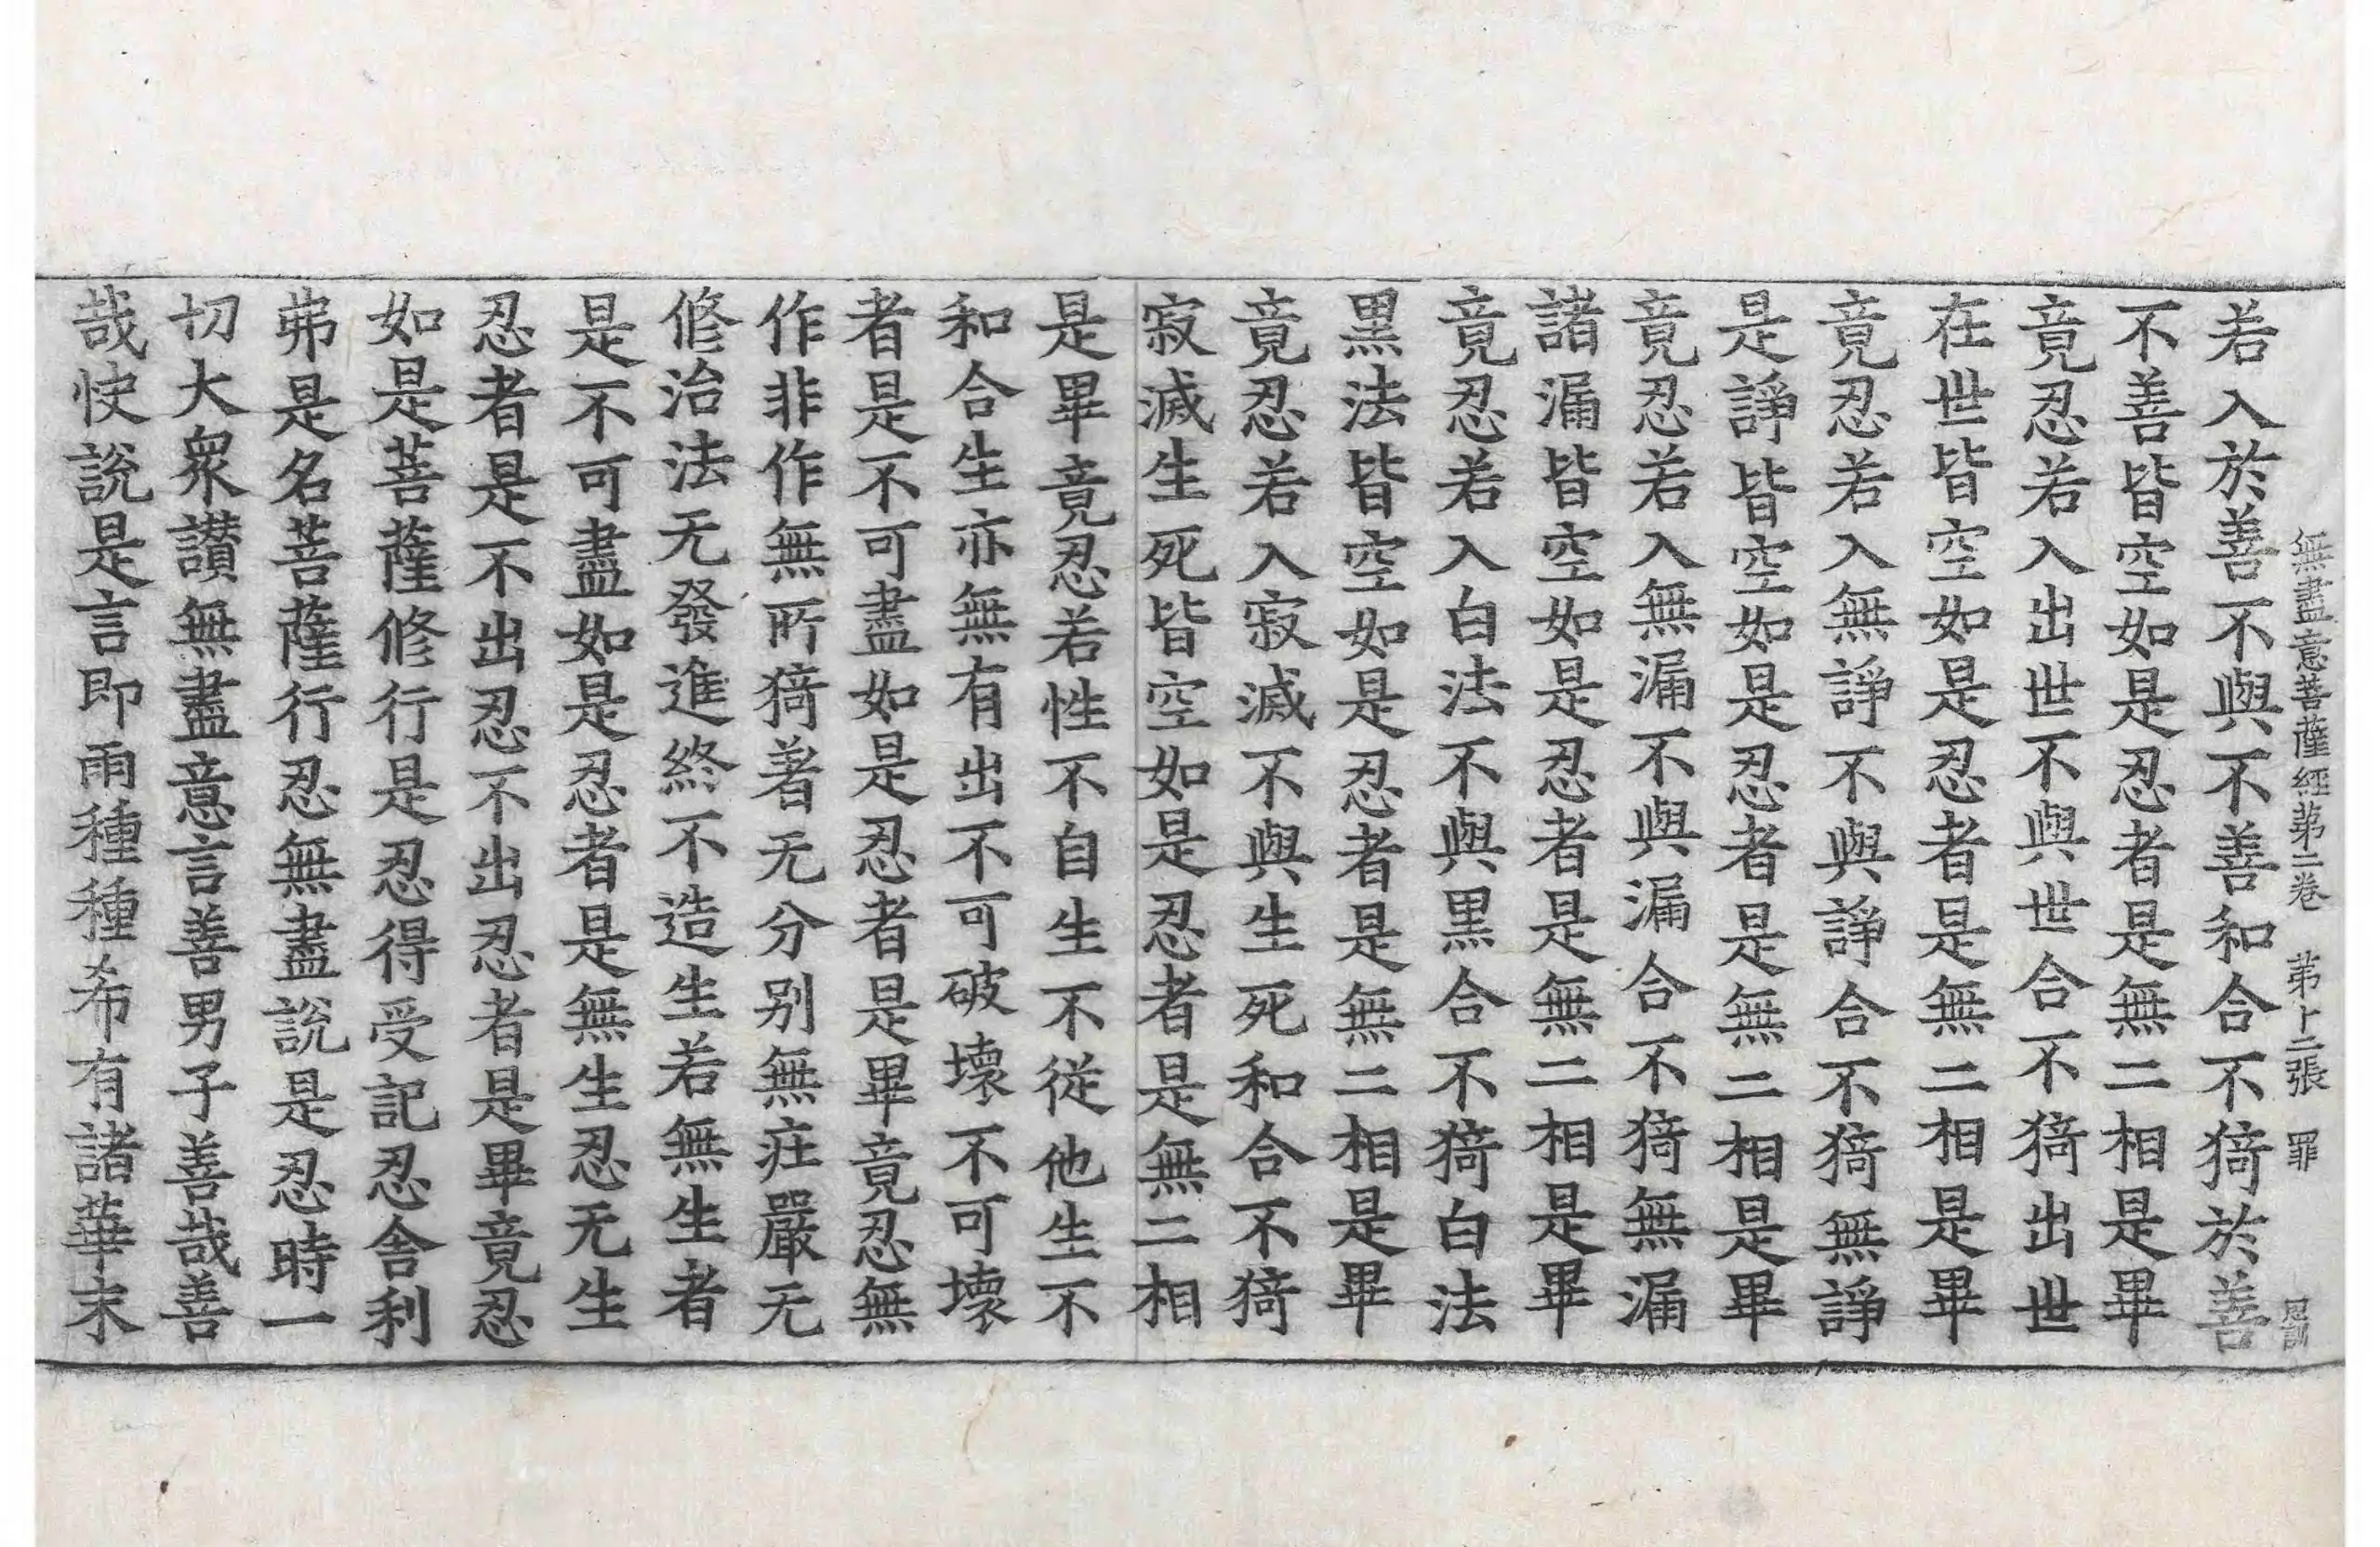 無盡意菩薩經第二卷　第十二張　罪
若入於善不與不善和合不猗於善
不善皆空如是忍者是無二相是畢
竟忍若入出世不與世合不猗出世
在世皆空如是忍者是無二相是畢
竟忍若入無諍不與諍合不猗無諍
是諍皆空如是忍者是無二相是畢
竟忍若入無漏不與漏合不猗無漏
諸漏皆空如是忍者是無二相是畢
竟忍若入白法不與黒合不猗白法
黒法皆空如是忍者是無二相是畢
竟忍若入寂滅不與生死和合不猗
寂滅生死皆空如是忍者是無二相
是畢竟忍若性不自生不從他生不
和合生亦無有出不可破壞不可壞
者是不可盡如是忍者是畢竟忍無
作非作無所猗著无分别無莊嚴无
修治法无發進終不造生若無生者
是不可盡如是忍者是無生忍无生
忍者是不出忍不出忍者是畢竟忍
如是菩薩修行是忍得受記忍舍利
弗是名菩薩行忍無盡說是忍時一
切大衆讃無盡意言善男子善哉善
哉快說是言即雨種種希有諸華末